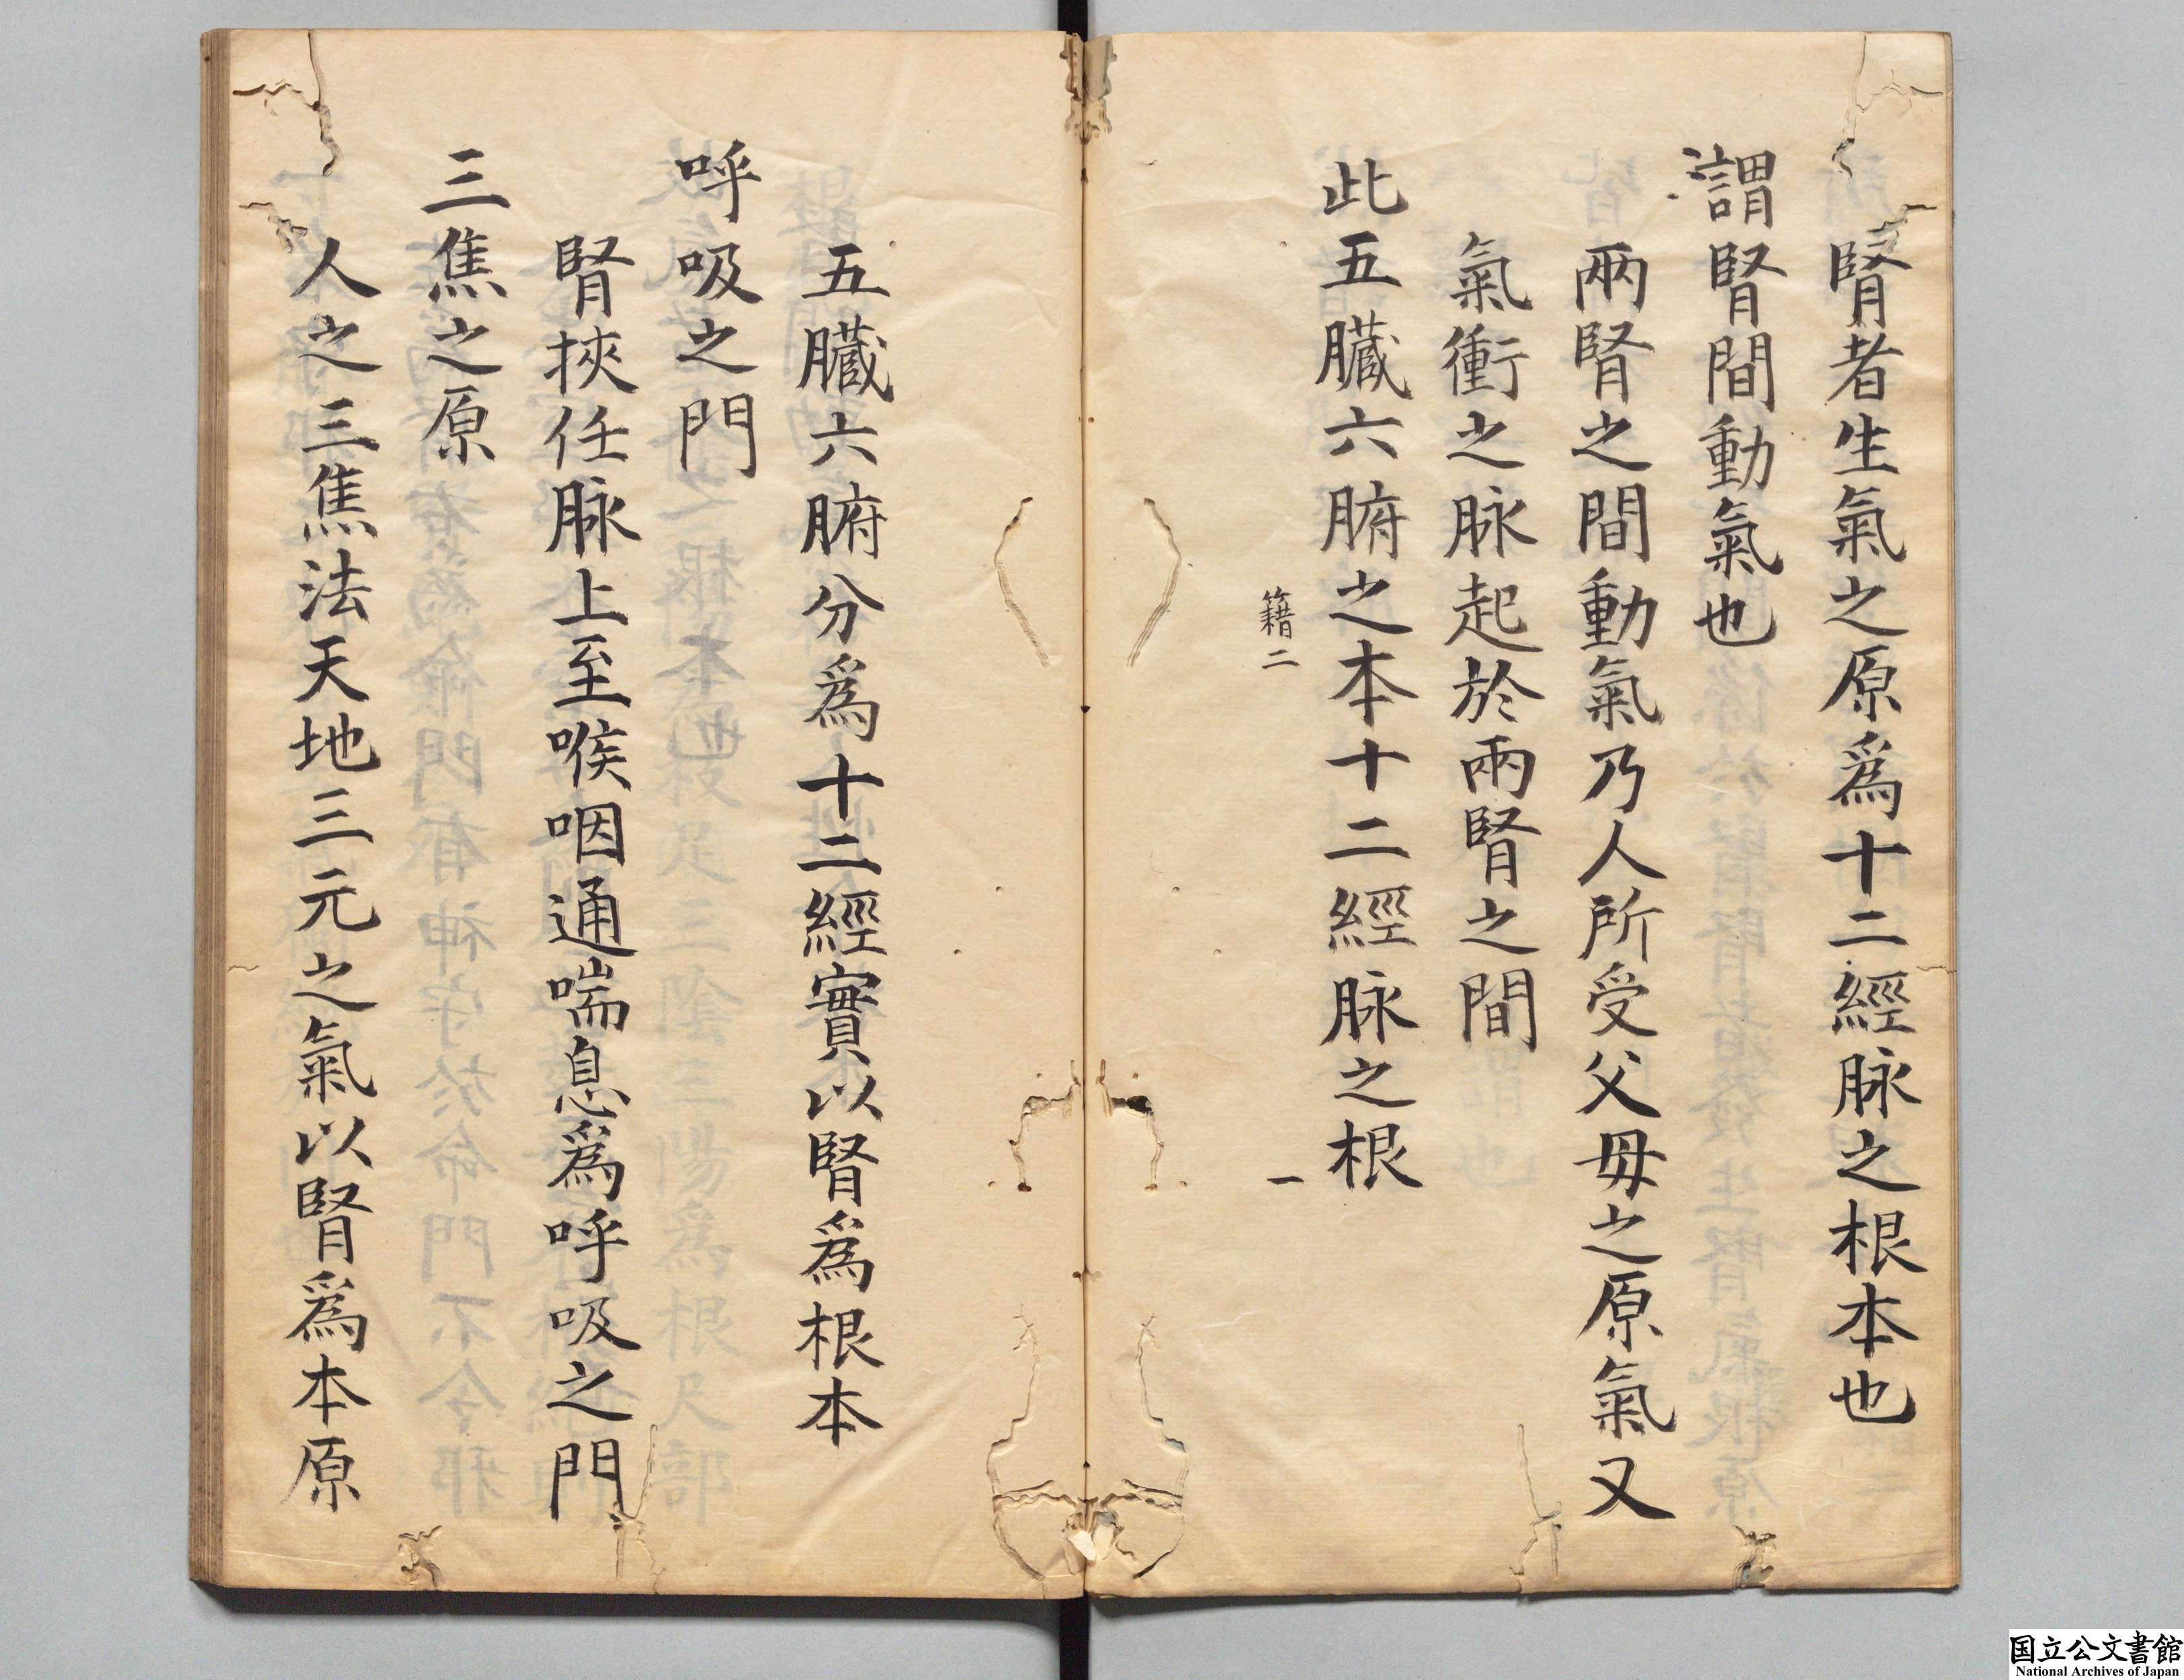 腎者生氣之原爲十二經脉之根本也
謂腎間動氣也
兩腎之間動氣乃人所受父母之原氣又
氣衝之脉起於兩腎之間
此五臓六腑之本十二經脉之根
籍二
一
五臓六腑分爲十二經實以腎爲根本
呼吸之門
腎挾任脉上至喉咽通喘息爲呼吸之門
三焦之原
人之三焦法天地三元之氣以腎爲本原
国立公文書館
National Archives of Japan